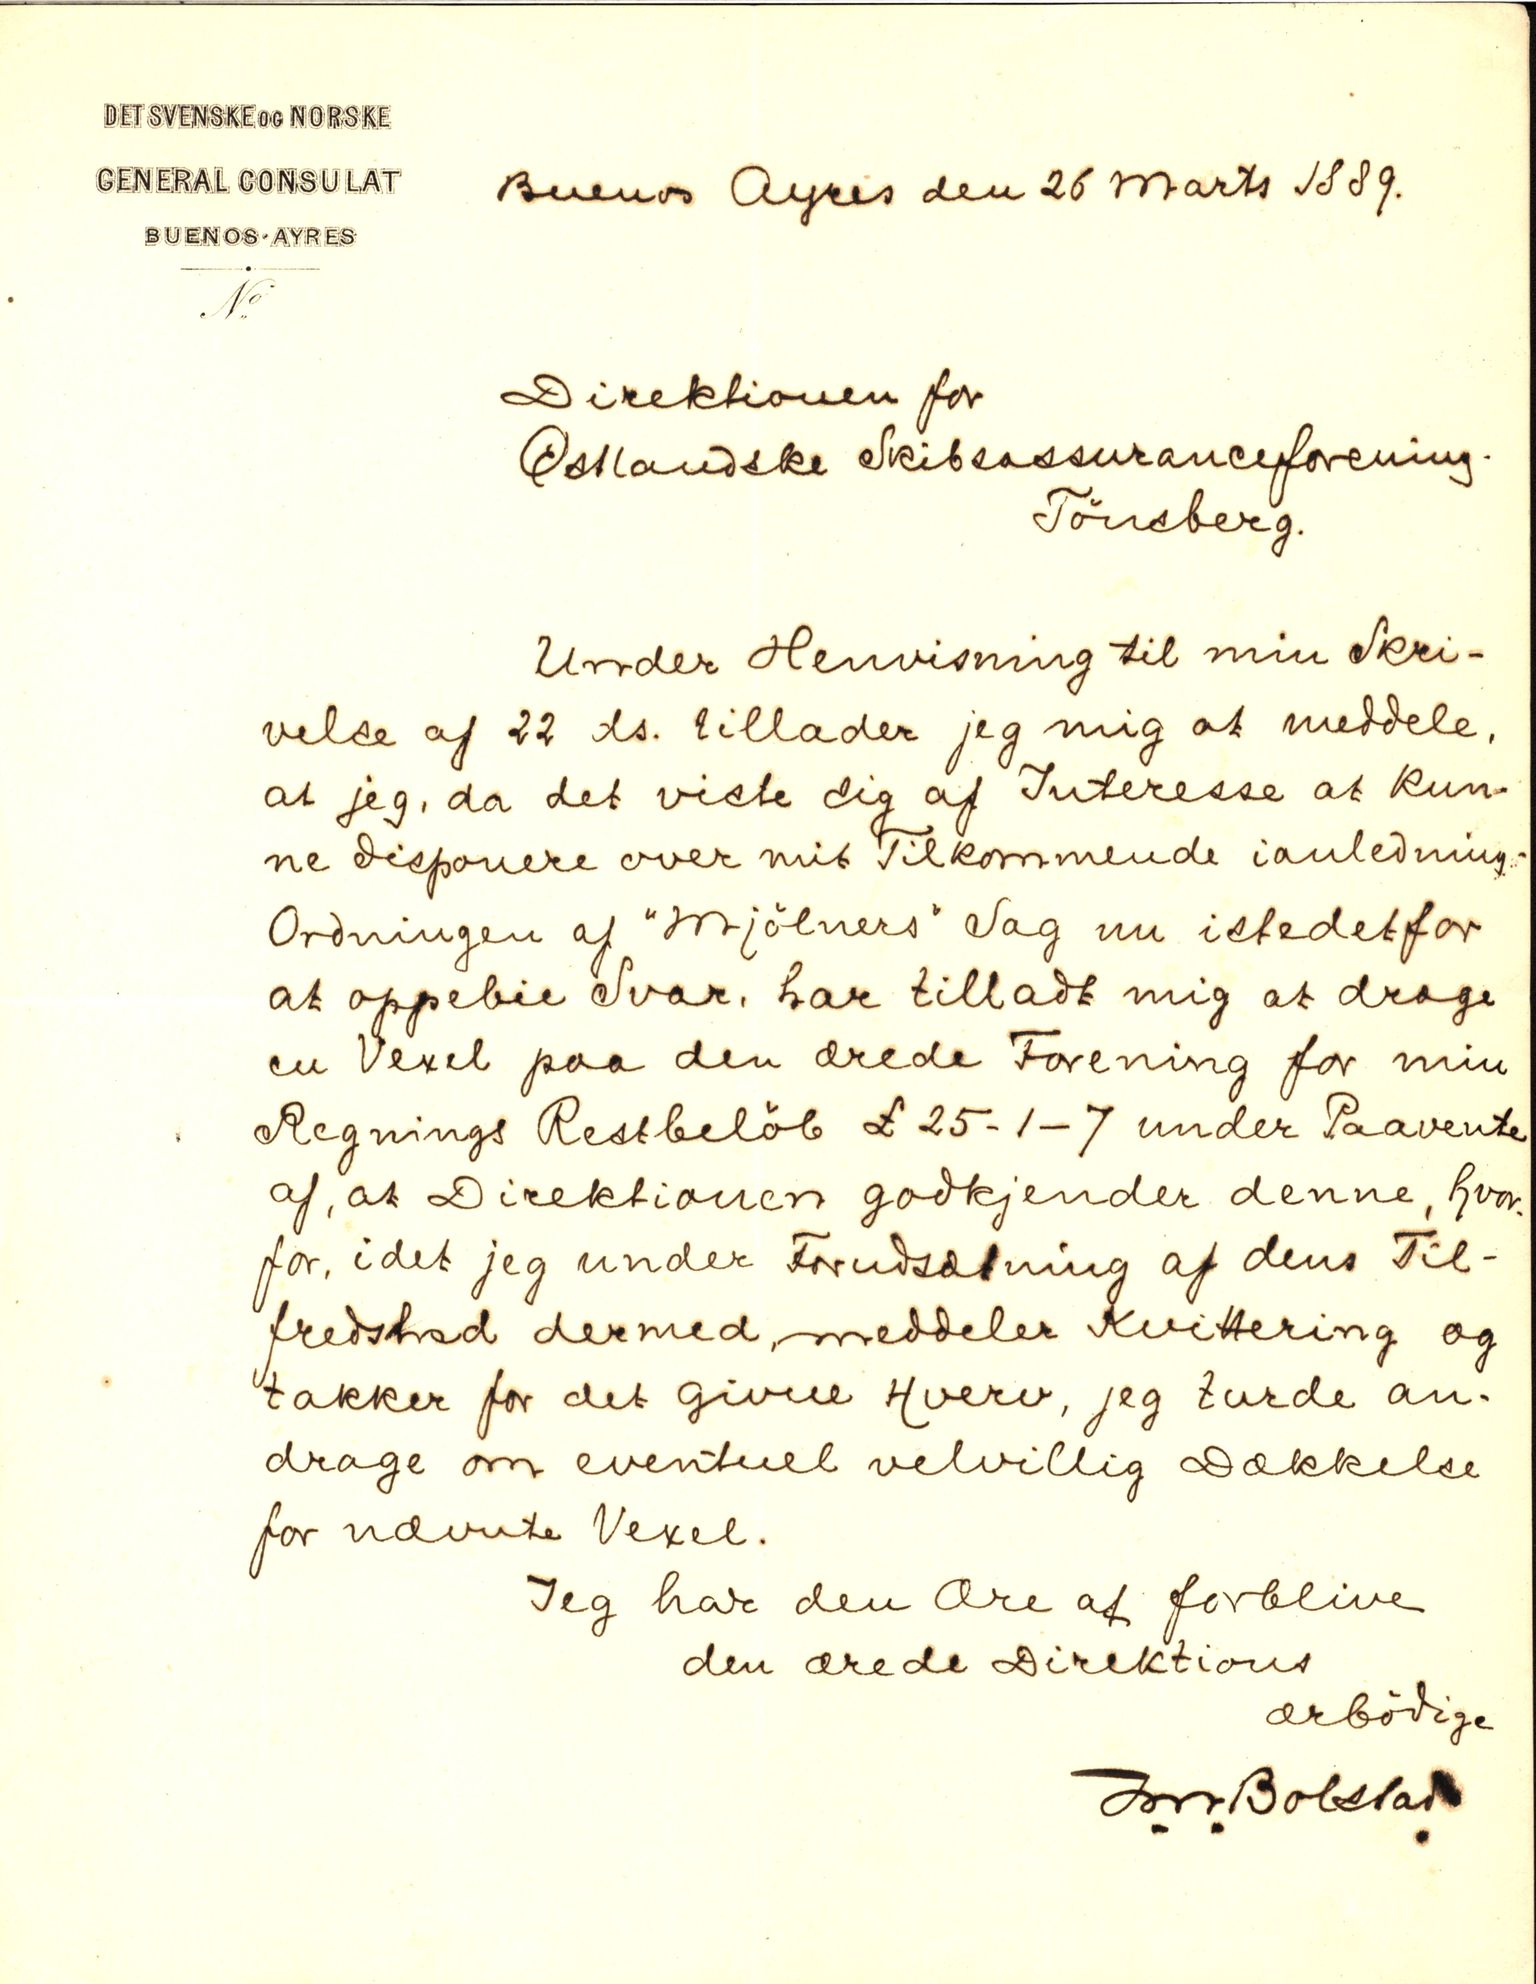 DET SVENSKE OG NORSKE
GENERAL CONSULAT
BUENOS-AYRES
No
Buenos Ayres den 26 Marts 1889.
Direktionen for
Østlandske Skibsassuranceforening.
Tönsberg.
Under Henvisning til min Skri-
velse af 22 ds. tillader jeg mig at meddele,
at jeg, da det viste sig af Interesse at kun-
ne disponere over mit Tilkommende ianledning
Ordningen af "Mjölners" Sag nu istedetfor
at oppebie Svar, har tilladt mig at drage
en Vexel paa den ærede Forening for min
Regnings Restbelöb £ 25-1-7 under Paavente
af, at Direktionen godkjender denne, hvor-
for, idet jeg under Forudsætning af dens Til-
fredshed dermed, meddeler Kvittering og
takker for det givne Hverv, jeg turde an-
drage om eventuel velvillig Dækkelse
for nævnte Vexel.
Jeg har den Ære at forblive
den ærede Direktions
ærbödige
Bolstad